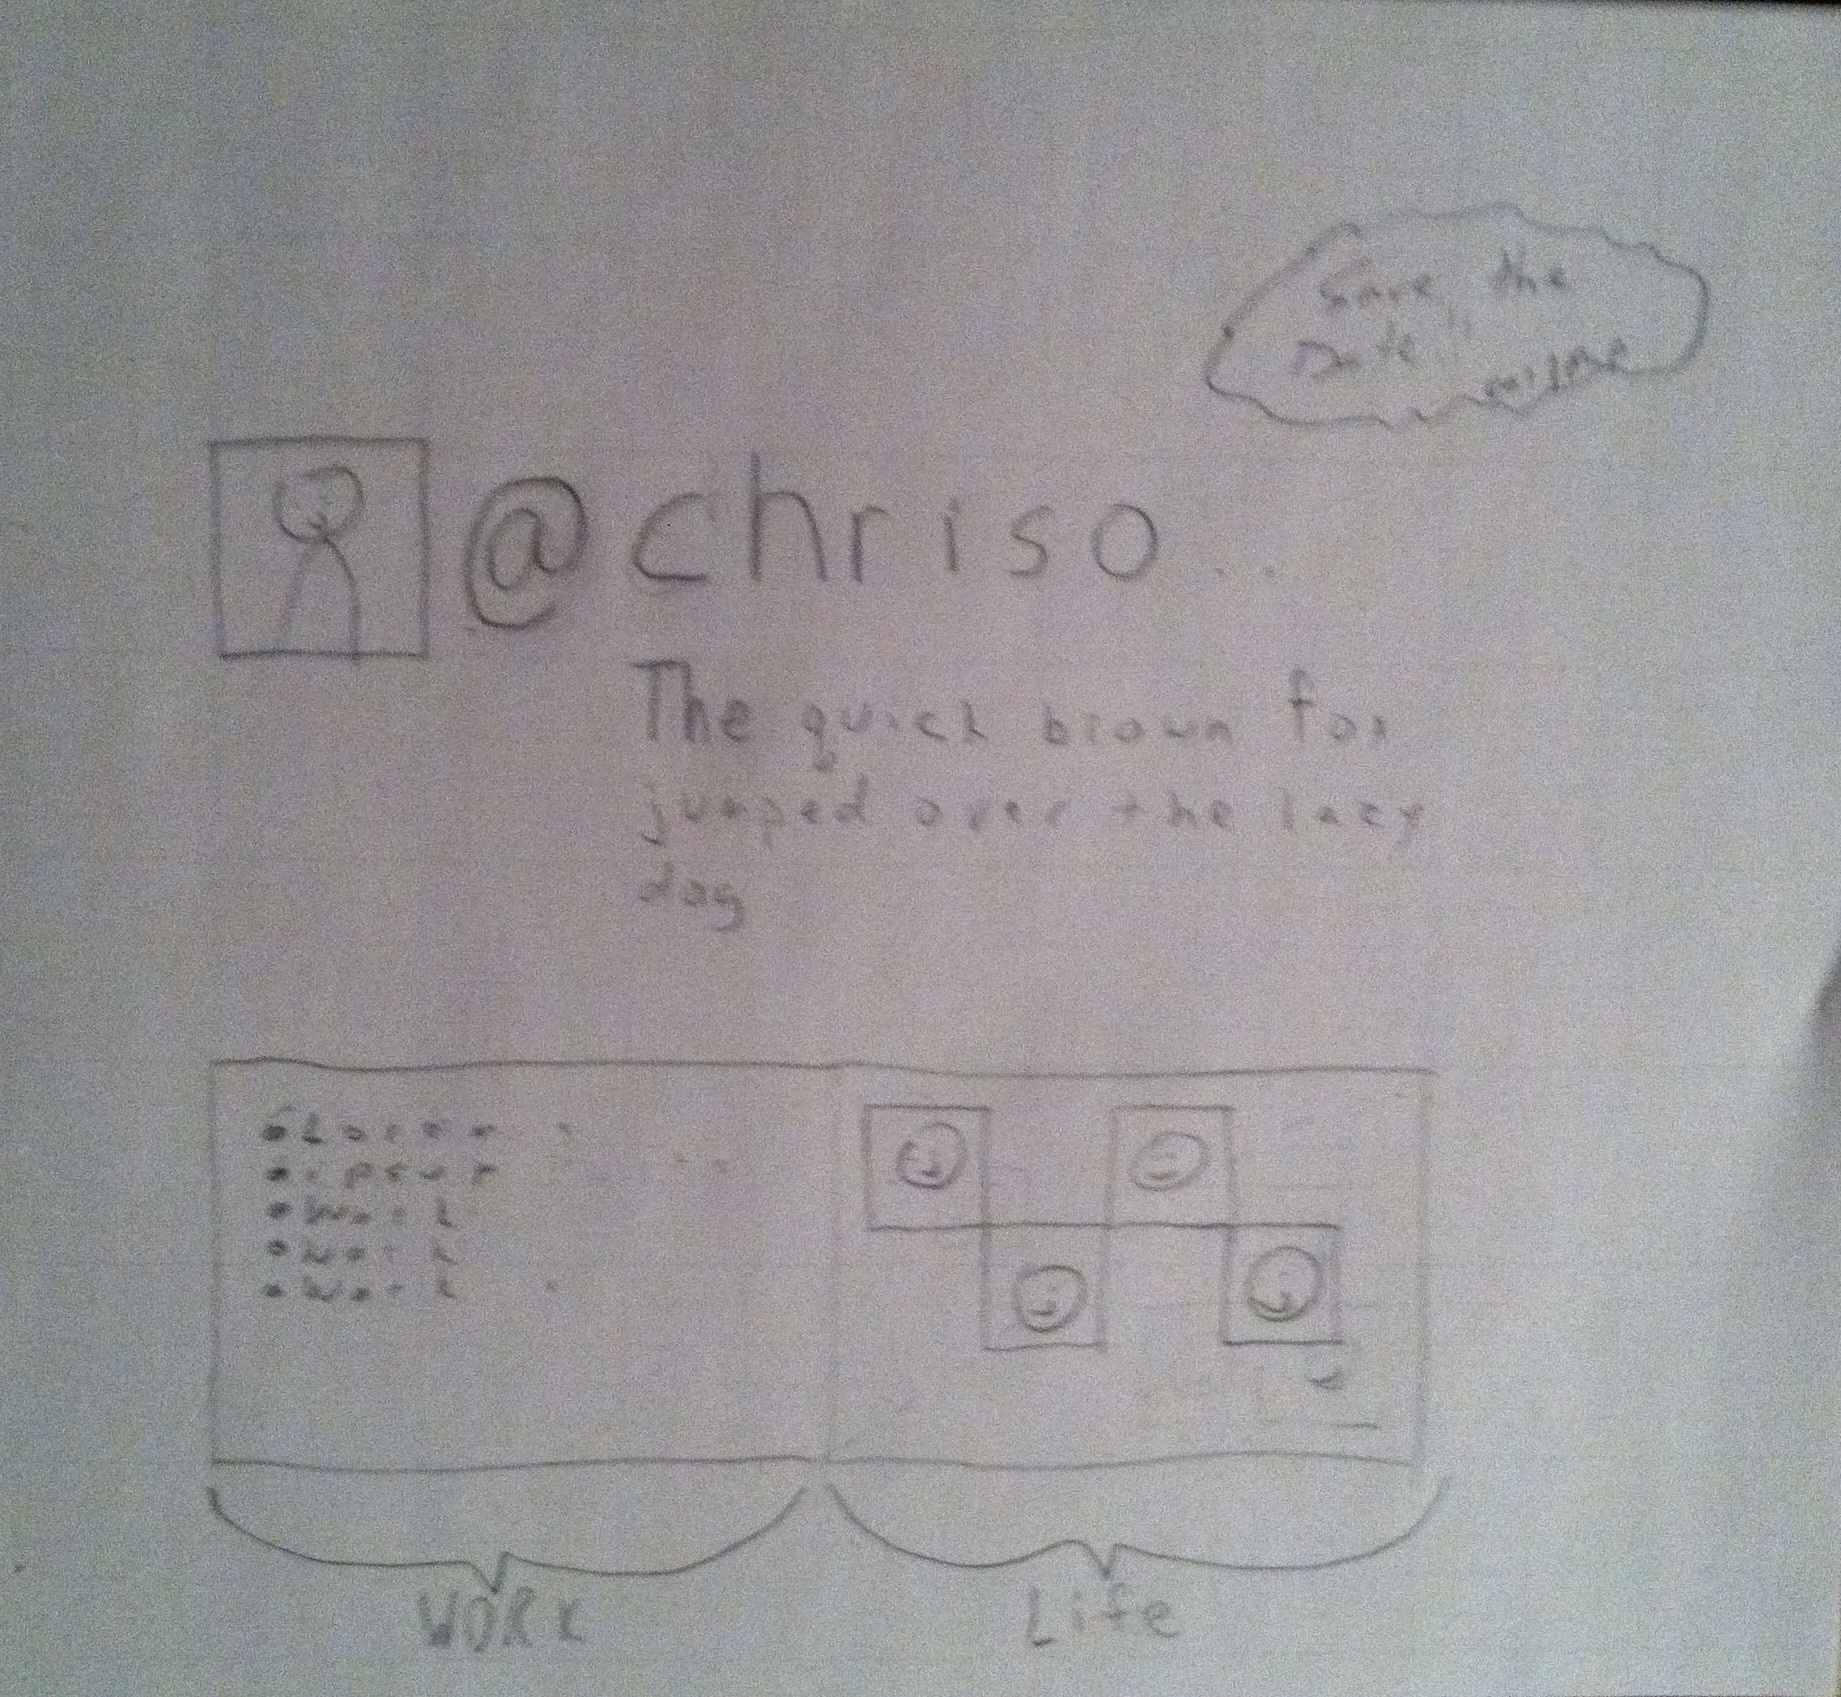 Save the
Date"
@chriso..
The quick brown fox
jumped over the lazy
dog
• Lorem
• ipsum
• work
• work
• work
WORK
Life